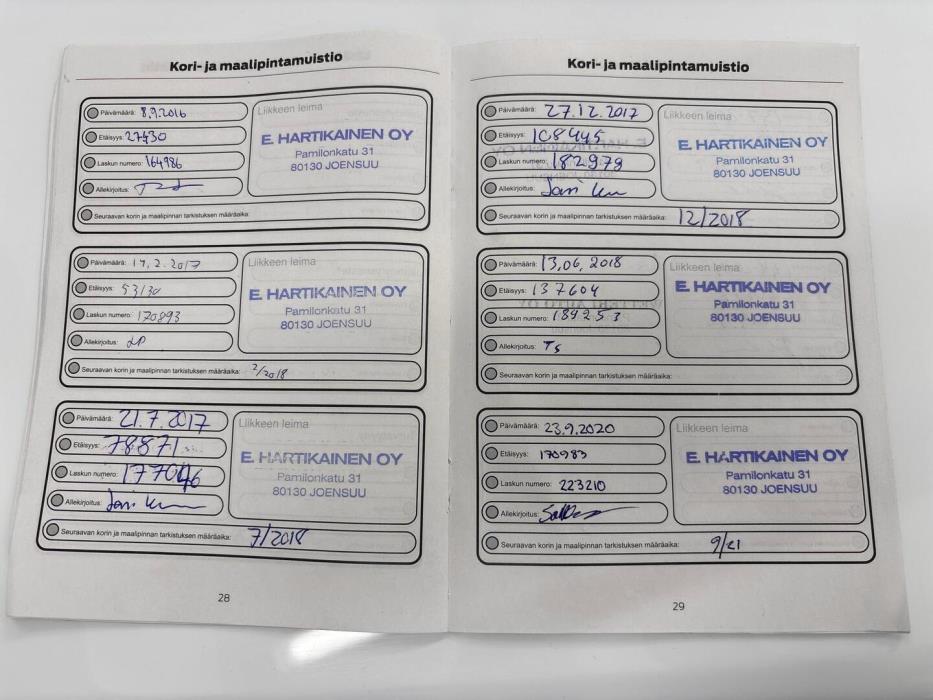 Kori- ja maalipintamuistio
Päivämäärä: 8.9.2016
Etäisyys: 27430
Laskun numero: 164986
Allekirjoitus:
Seuraavan korin ja maalipinnan tarkistuksen määräaika:
Liikkeen leima
E. HARTIKAINEN OY
Pamilonkatu 31
80130 JOENSUU
Päivämäärä: 14.2.2017
Etäisyys: 53130
Laskun numero: 170893
Allekirjoitus:
Seuraavan korin ja maalipinnan tarkistuksen määräaika: 2/2018
Liikkeen leima
E. HARTIKAINEN OY
Pamilonkatu 31
80130 JOENSUU
Päivämäärä: 21.7.2017
Etäisyys: 78871
Laskun numero: 177046
Allekirjoitus:
Seuraavan korin ja maalipinnan tarkistuksen määräaika: 7/2018
Liikkeen leima
E. HARTIKAINEN OY
Pamilonkatu 31
80130 JOENSUU
28
Kori- ja maalipintamuistio
Päivämäärä: 27.12.2017
Etäisyys: 108445
Laskun numero: 182979
Allekirjoitus:
Seuraavan korin ja maalipinnan tarkistuksen määräaika: 12/2018
Liikkeen leima
E. HARTIKAINEN OY
Pamilonkatu 31
80130 JOENSUU
Päivämäärä: 13.06.2018
Etäisyys: 137604
Laskun numero: 189253
Allekirjoitus: TS
Seuraavan korin ja maalipinnan tarkistuksen määräaika:
Liikkeen leima
E. HARTIKAINEN OY
Pamilonkatu 31
80130 JOENSUU
Päivämäärä: 23.9.2020
Etäisyys: 170983
Laskun numero: 223210
Allekirjoitus:
Seuraavan korin ja maalipinnan tarkistuksen määräaika: 9/21
Liikkeen leima
E. HARTIKAINEN OY
Pamilonkatu 31
80130 JOENSUU
29